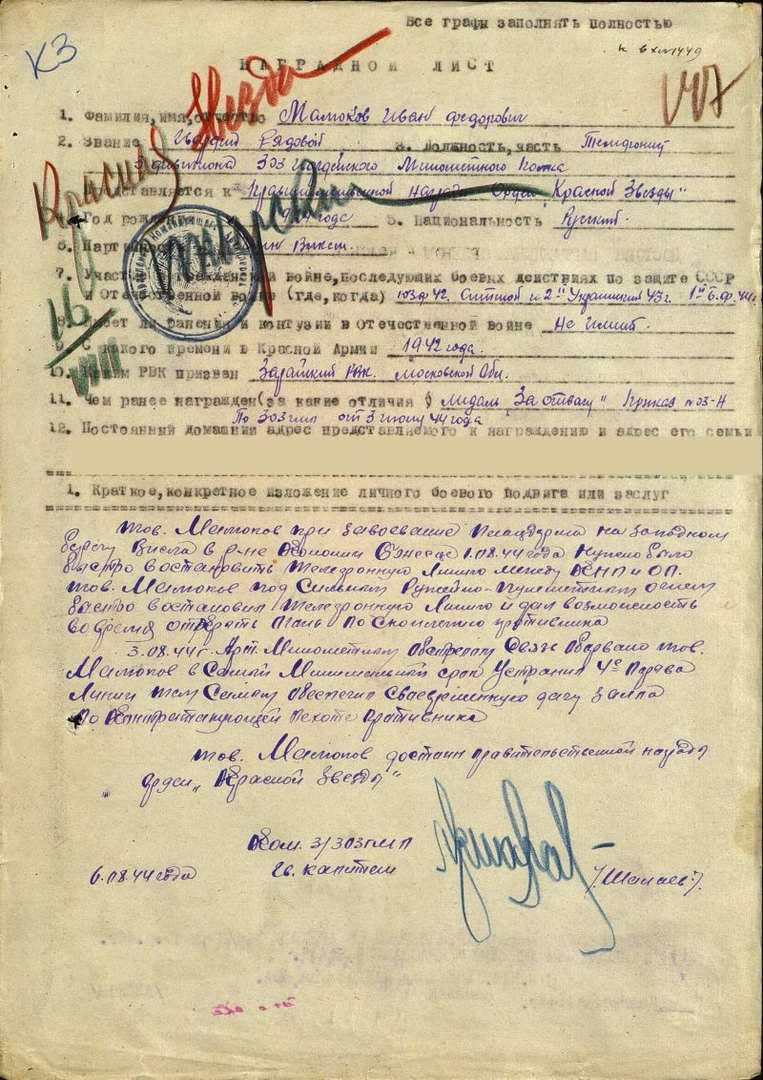 Все графы заполнять полностью
КЗ
НАГРАДНОЙ ЛИСТ
Красная Звезда
1. Фамилия, имя, отчество Мамоков Иван Федорович
2. Звание Гвардии Рядовой 3. Должность, часть Телефонист
3 дивизиона 303 Гвардейского Минометного Полка
Представляется к Правительственной Награде Орден "Красной Звезды"
4. Год рождения года 5. Национальность Русский.
6. Партийность
7. Участие в гражданской войне, последующих боевых действиях по защите СССР
и Отечественной войне (где, когда) 2й Украинский 43г.
8. Имеет ли ранения и контузии в Отечественной войне Не имеет.
9. С какого времени в Красной Армии 1942 года.
10. Каким РВК призван Зарайский РВК. Московской Обл.
11. Чем ранее награжден (за какие отличия) Медаль "За отвагу" Приказ №03-Н
По 303 гмп от 3 июня 44 года
12. Постоянный домашний адрес представляемого к награждению и адрес его семьи
1. Краткое, конкретное изложение личного боевого подвига или заслуг
тов. Мамоков при завоевание Плацдарма на западном
берегу Висла в р-не 1.08.44 года Нужно было
быстро востановить Телефонную Линию между КНП и ОП.
тов. Мамоков под Сильным Ружейно-пулеметным огнем
быстро востановил Телефонную Линию и дал возможность
во время открыть Огонь по Скоплению противника
3.08.44г. Арт. Минометным Обстрелом Связь Оборвано тов.
Мамоков в Самый Минимальный срок Устранил 4е Порыва
Линии тем Самым Обеспечил Своевременную дачу Залпа
По Контратакующей Пехоте Противника
тов. Мамоков достоин правительственной награды
орден "Красной Звезды"
Ком. 3/303 ГМП
6.08.44 года Гв. капитан /Шамаев/.